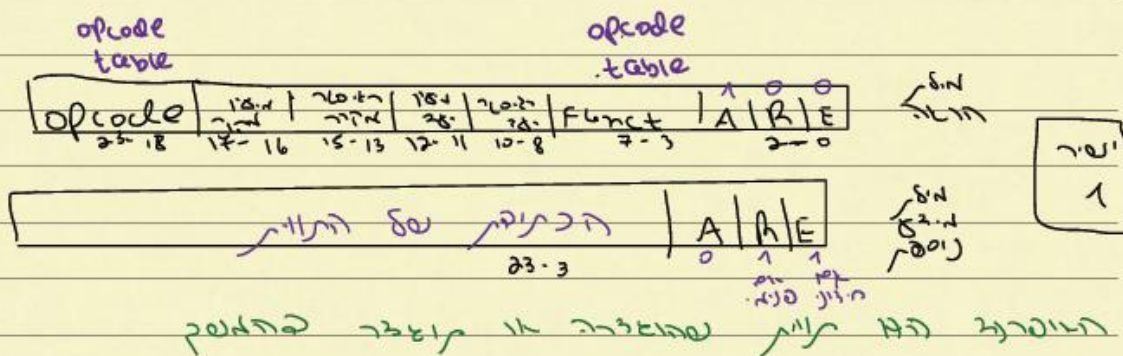 opcode table opcode table
opcode | מיעון מקור | רגיסטר מקור | מיעון יעד | רגיסטר יעד | Funct | A | R | E
1 0 0
23-18 17-16 15-13 12-11 10-8 7-3 2-0
מילת הוראה
ישיר 1
הכתובת של התווית | A | R | E
23-3 0 1 1
אם פנימי אם חיצוני
מילת מידע נוספת
האופרנד הוא תווית שהוצהרה או תוצהר בהמשך